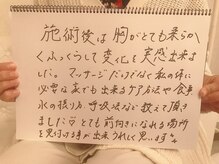 施術後は胸がとても柔らかく
ふっくらして変化を実感出来ま
した。マッサージだけでなく私の体に
必要な家でも出来るケア方法や食事
水の摂り方、呼吸法など教えて頂き
ました♡とても前向きになれる場所
を見つける事が出来うれしく思います。